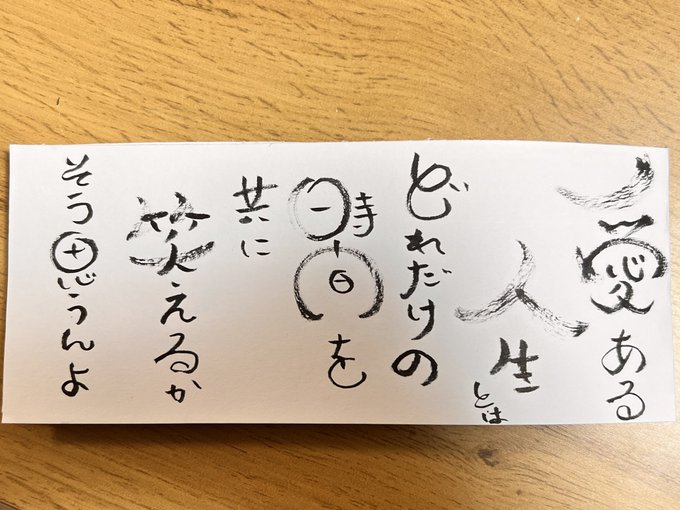 愛ある
人生とは
どれだけの
時間を
共に
笑えるか
そう思うんよ